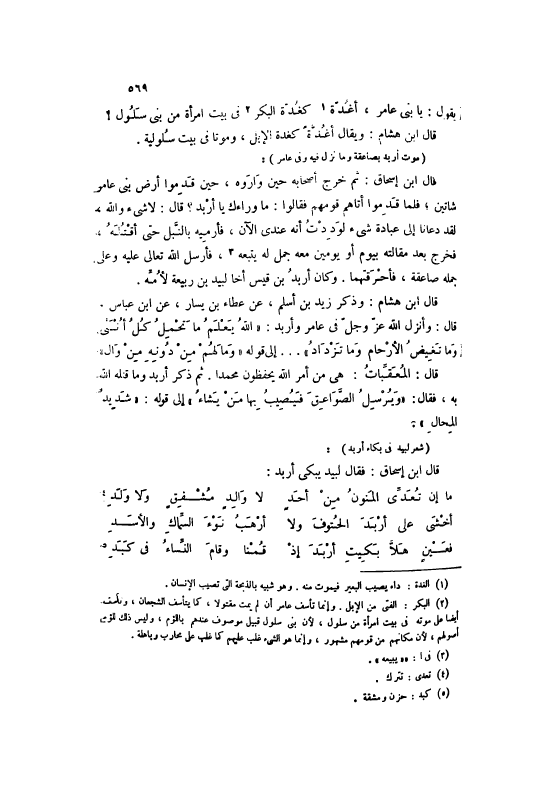 ٥٦٩
يقول : يا بنى عامر ، أغُدّة ١ كغُدة البكر ٢ فى بيت امرأة من بنى سلُول !
قال ابن هشام : ويقال أغُدَّةً كغدة الإبل ، وموتا فى بيت سلُولية .
( موت أربد بصاعقة وما نزل فيه وفى عامر ) :
قال ابن إسحاق : ثم خرج أصحابه حين وَارَوه ، حين قَدِموا أرض بنى عامر
شاتين ؛ فلما قَدِموا أتاهم قومهم فقالوا : ما وراءك يا أرْبد ؟ قال : لاشىء والله
لقد دعانا إلى عبادة شىء لوَدِدْتُ أنه عندى الآن ، فأرميه بالنَّبل حتى أقتُلَه ،
فخرج بعد مقالته بيوم أو يومين معه جمل له يتبعه ٣ ، فأرسل الله تعالى عليه وعلى
جمله صاعقة ، فأحْرقتهما . وكان أربدُ بن قيس أخا لبيد بن ربيعة لأُمِّه .
قال ابن هشام : وذكر زيد بن أسلم ، عن عطاء بن يسار ، عن ابن عباس .
قال : وأنزل الله عزّ وجلّ فى عامر وأربد : « اللهُ يَعْلَمُ ما تَحْمِلُ كُلُّ أُنْثَى
وَما تَغِيضُ الأرْحامِ وَما تَزْدَادُ» . . . إلى قوله « وَما لهُمْ مِنْ دُونِهِ مِنْ وَال»
قال : المُعَقِّباتُ : هى من أمر الله يحفظون محمدا . ثم ذكر أربد وما قتله الله
به ، فقال : «وَيُرْسِلُ الصَّوَاعِقَ فَيُصِيبُ بِها مَنْ يَشاءُ» إلى قوله : « شَدِيدُ
المِحال » .
( شعر لبيد فى بكاء أربد ) :
قال ابن إسحاق : فقال لبيد يبكى أربد :
ما إن تُعَدِّى المَنونُ مِنْ أحَدٍ لا وَالِدٍ مُشْفِقٍ وَلا وَلَدِ ٤
أخْشَى على أرْبَدَ الحُتوفَ ولا أرْهَبُ نَوْءَ السِّماكِ والأسَدِ
فعَيْنِ هَلَّا بَكَيتِ أرْبَدَ إذْ قُمْنا وقامَ النِّساءُ فى كَبَدِ ٥
(١) الغدة : داء يصيب البعير فيموت منه . وهو شبيه بالذبحة التى تصيب الإنسان .
(٢) البكر : الفتى من الإبل . وإنما تأسف عامر أن لم يمت مقتولا ، كما يتأسف الشجعان ، وتأسف
أيضا على موته فى بيت امرأة من سلول ، لأن بنى سلول قبيل موصوف عندهم باللؤم ، وليس ذلك للؤم
أصولهم ، لأن مكانهم من قومهم مشهور ، وإنما هو الشىء غلب عليهم كما غلب على محارب وباهلة .
(٣) فى ا : « يبيعه » .
(٤) تعدى : تترك .
(٥) كبد : حزن ومشقة .